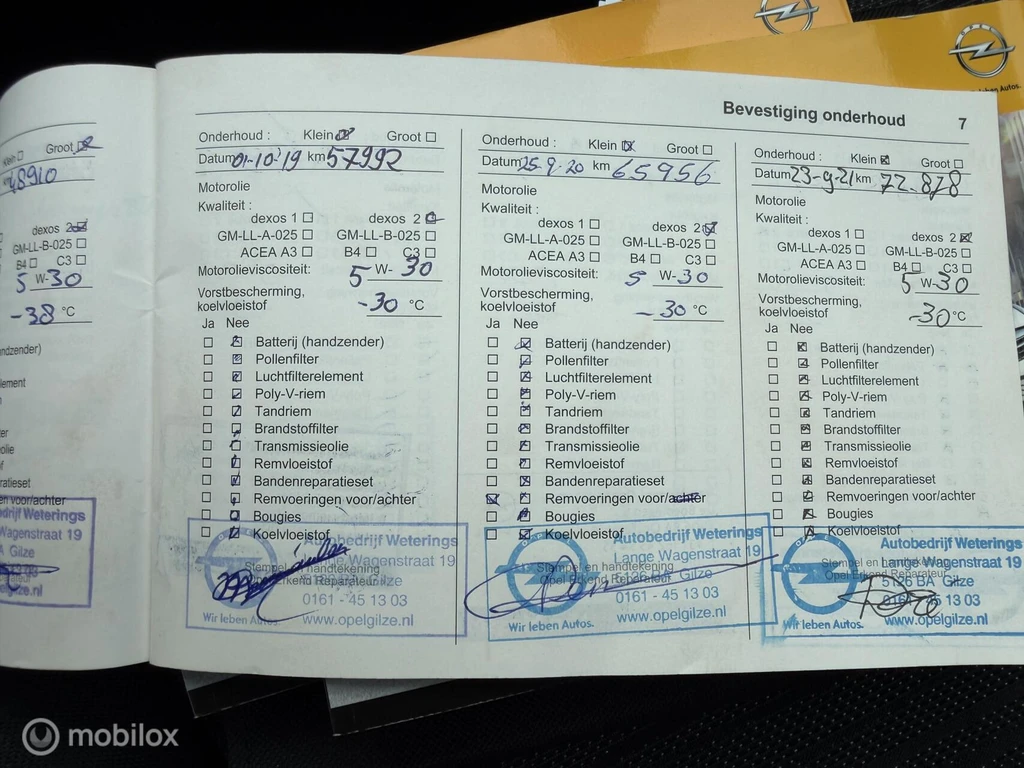 OPEL
leben Autos.
Bevestiging onderhoud 7
Klein Groot
48910
dexos 2
GM-LL-B-025
B4 C3
5 W-30
-38 °C
andzender)
lement
olie
f
aratieset
en voor/achter
drijf Weterings
Wagenstraat 19
A Gilze
gilze.nl
Onderhoud : Klein Groot
Datum 01-10-'19 km 57992
Motorolie
Kwaliteit :
dexos 1 dexos 2
GM-LL-A-025 GM-LL-B-025
ACEA A3 B4 C3
Motorolieviscositeit: 5 W- 30
Vorstbescherming,
koelvloeistof -30 °C
Ja Nee
Batterij (handzender)
Pollenfilter
Luchtfilterelement
Poly-V-riem
Tandriem
Brandstoffilter
Transmissieolie
Remvloeistof
Bandenreparatieset
Remvoeringen voor/achter
Bougies
Koelvloeistof
Autobedrijf Weterings
Lange Wagenstraat 19
Stempel en handtekening
Opel Erkend Reparateur
Gilze
0161 - 45 13 03
Wir leben Autos. www.opelgilze.nl
Onderhoud : Klein Groot
Datum 25-9-20 km 65956
Motorolie
Kwaliteit :
dexos 1 dexos 2
GM-LL-A-025 GM-LL-B-025
ACEA A3 B4 C3
Motorolieviscositeit: 5 W-30
Vorstbescherming,
koelvloeistof -30 °C
Ja Nee
Batterij (handzender)
Pollenfilter
Luchtfilterelement
Poly-V-riem
Tandriem
Brandstoffilter
Transmissieolie
Remvloeistof
Bandenreparatieset
Remvoeringen voor/achter
Bougies
Koelvloeistof
Autobedrijf Weterings
Lange Wagenstraat 19
Stempel en handtekening
Opel Erkend Reparateur
Gilze
0161 - 45 13 03
Wir leben Autos. www.opelgilze.nl
Onderhoud : Klein Groot
Datum 23-9-21 km 72.878
Motorolie
Kwaliteit :
dexos 1 dexos 2
GM-LL-A-025 GM-LL-B-025
ACEA A3 B4 C3
Motorolieviscositeit: 5 W-30
Vorstbescherming,
koelvloeistof -30°C
Ja Nee
Batterij (handzender)
Pollenfilter
Luchtfilterelement
Poly-V-riem
Tandriem
Brandstoffilter
Transmissieolie
Remvloeistof
Bandenreparatieset
Remvoeringen voor/achter
Bougies
Koelvloeistof
Autobedrijf Weterings
Lange Wagenstraat 19
Stempel en handtekening
Opel Erkend Reparateur
5126 BA Gilze
0161 - 45 13 03
Wir leben Autos. www.opelgilze.nl
mobilox